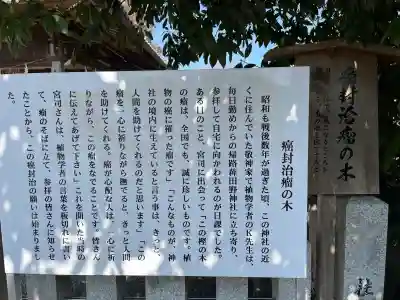 癌封治瘤の木
昭和も戦後数年が過ぎた頃、この神社の近
くに住んでいた敬神家で植物学者のK先生は、
毎日勤めからの帰路薭田野神社に立ち寄り、
参拝して自宅に向かわれるのが日課でした。
ある日のこと、宮司に出会って「この樫の木
の癌は、全国でも、誠に珍しいものです。植
物の癌に罹った瘤です」「こんなものが、神
社の境内に生えていると言う事は、きっと、
人間を助けてくれるのだと思います」「この
癌を一心に祈りながら撫でると、きっと人間
を助けてくれる。癌が心配な人は、一心に祈
りながら、この瘤を撫でることです。皆さん
に伝えてあげて下さい」これを聞いた当時の
宮司さんは、植物学者の言葉を板切れに書い
て、瘤のそばに立て、参拝の皆さんに知らせ
たことから、この癌封治の願いは始まりまし
た。
癌封治瘤の木